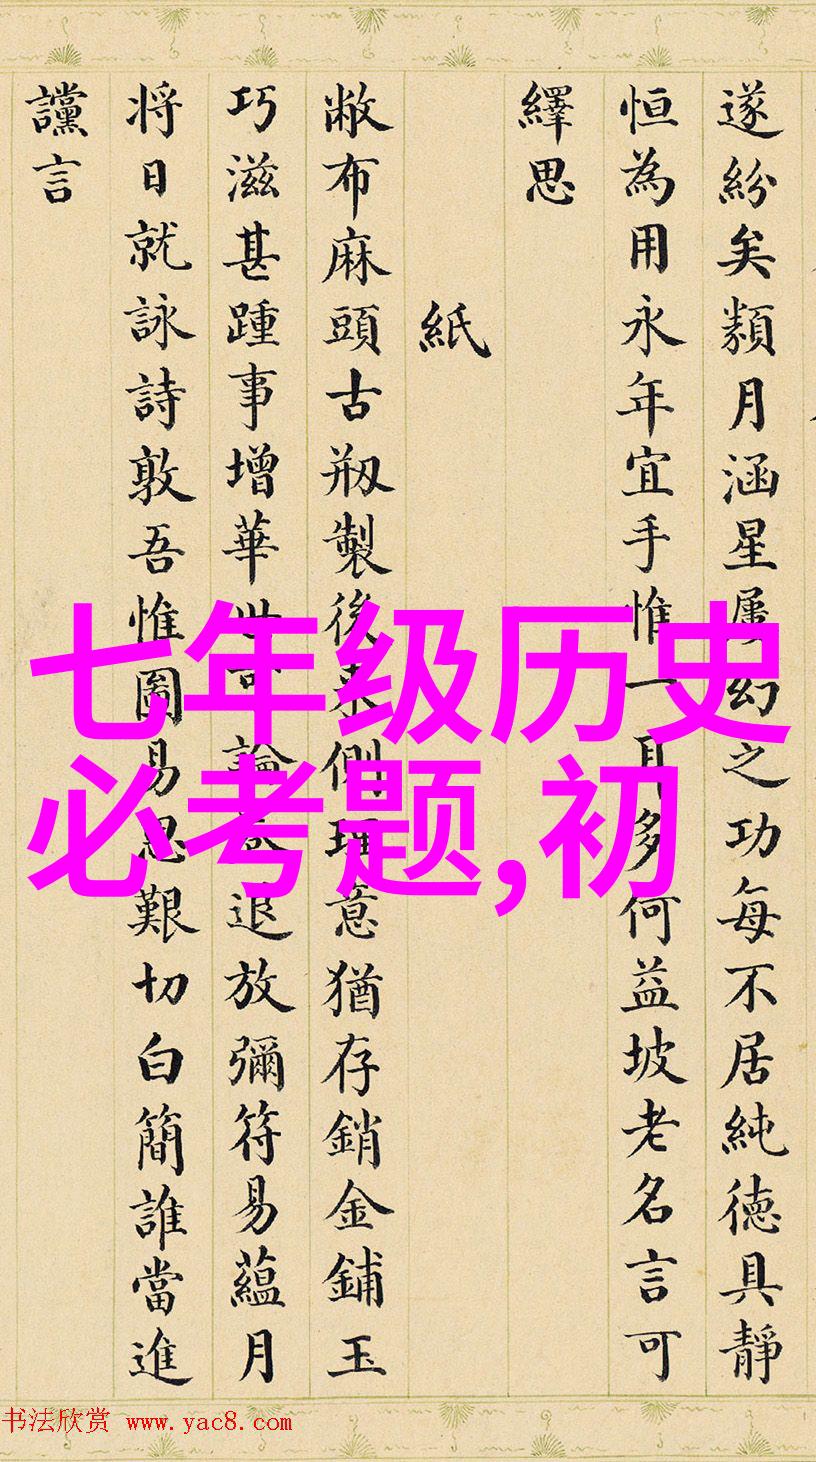 遂紛矣類月涵星屬幻之功每不居純德具靜
恒為用永年宜手惟一耳多何益坡老名言可
繹思
紙
敝布麻頭古剏製後來側理意猶存銷金鋪玉
巧滋甚踵事增華世可論退放彌符易蘊月
将日就詠詩敦吾惟圖易思艱切白簡誰當進
讜言
七年级历史
必考题,初
书法欣赏 www.yac8.com